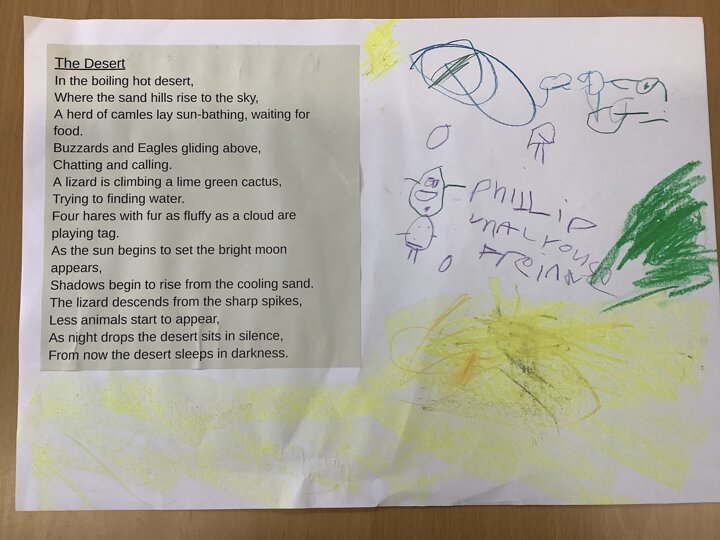 The Desert
In the boiling hot desert,
Where the sand hills rise to the sky,
A herd of camles lay sun-bathing, waiting for
food.
Buzzards and Eagles gliding above,
Chatting and calling.
A lizard is climbing a lime green cactus,
Trying to finding water.
Four hares with fur as fluffy as a cloud are
playing tag.
As the sun begins to set the bright moon
appears,
Shadows begin to rise from the cooling sand.
The lizard descends from the sharp spikes,
Less animals start to appear,
As night drops the desert sits in silence,
From now the desert sleeps in darkness.
PHILLIP